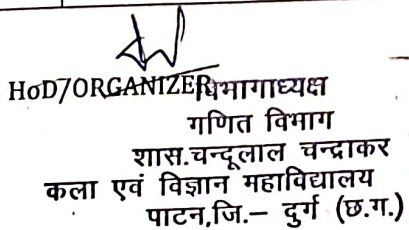 HoD/ORGANIZER विभागाध्यक्ष
गणित विभाग
शास.चन्दूलाल चन्द्राकर
कला एवं विज्ञान महाविद्यालय
पाटन,जि.– दुर्ग (छ.ग.)